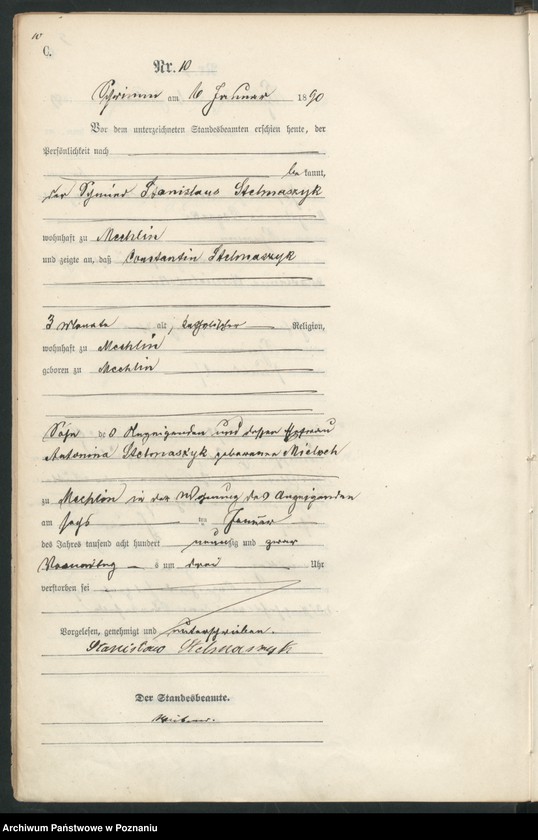 10
C.
Nr. 10
Schrimm am 6 Januar 1890
Vor dem unterzeichneten Standesbeamten erschien heute, der
Persönlichkeit nach
be kannt,
der Schmied Stanislaus Stelmaszyk
wohnhaft zu Mechlin
und zeigte an, daß Constantin Stelmaszyk
3 Monate alt, katholischer Religion,
wohnhaft zu Mechlin
geboren zu Mechlin
Sohn des Anzeigenden und dessen Ehefrau
Antonina Stelmaszyk geborenen Mieloch
zu Mechlin in der Wohnung des Anzeigenden
am sechs ten Januar
des Jahres tausend acht hundert neunzig und zwar
Vormittag s um drei Uhr
verstorben sei
Vorgelesen, genehmigt und unterschrieben.
Stanislaw Stelmaszyk
Der Standesbeamte.
Archiwum Państwowe w Poznaniu